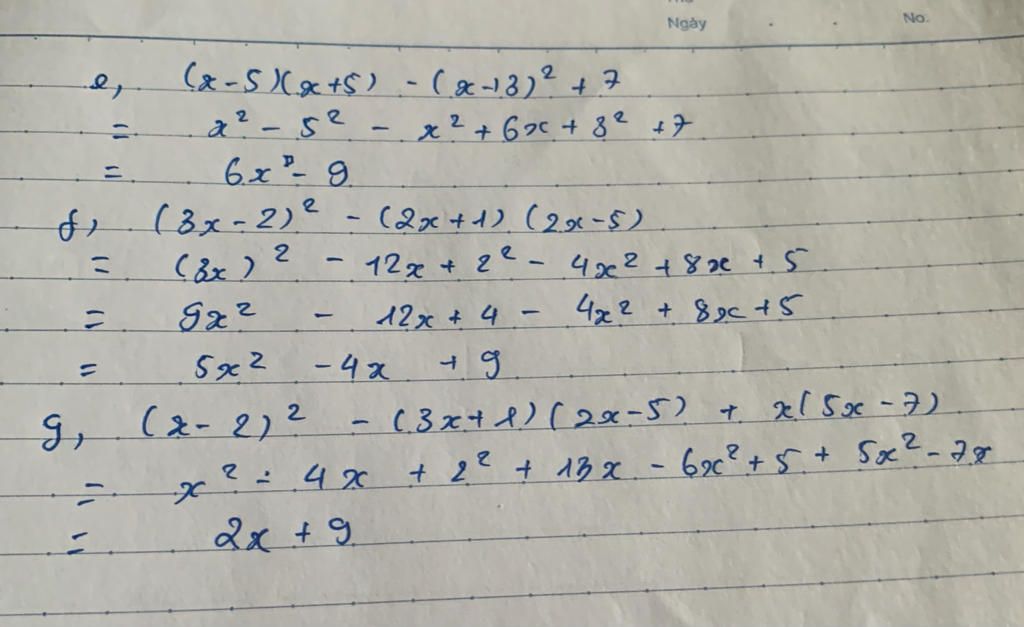 Ngày No.
e, (x-5)(x+5) - (x-13)² + 7
= x² - 5² - x² + 6x + 3² + 7
= 6x - 9
f, (3x-2)² - (2x+1)(2x-5)
= (3x)² - 12x + 2² - 4x² + 8x + 5
= 9x² - 12x + 4 - 4x² + 8x + 5
= 5x² - 4x + 9
g, (x-2)² - (3x+1)(2x-5) + x(5x-7)
= x² - 4x + 2² + 13x - 6x² + 5 + 5x² - 7x
= 2x + 9